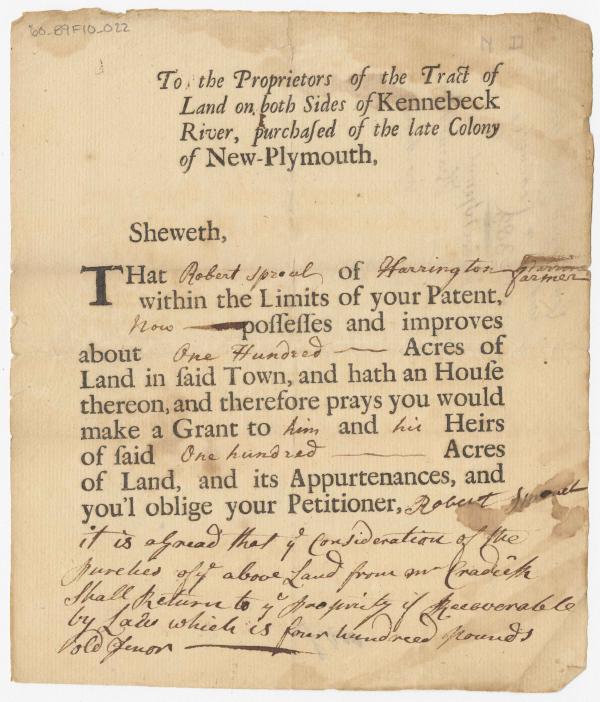 60-89F10-022
N D
To the Proprietors of the Tract of
Land on both Sides of Kennebeck
River, purchaſed of the late Colony
of New-Plymouth,
Sheweth,
THat Robert Sproul of Harrington farmer
within the Limits of your Patent,
Now poſſeſſes and improves
about One Hundred Acres of
Land in ſaid Town, and hath an Houſe
thereon, and therefore prays you would
make a Grant to him and his Heirs
of ſaid One hundred Acres
of Land, and its Appurtenances, and
you'l oblige your Petitioner, Robert Sproul
it is agread that yᵉ Consideration of the
purches of yᵉ above Land from mr Cradück
Shall Return to yᵉ propriety if Recoverable
by Laws which is four hundreed pounds
old tenor